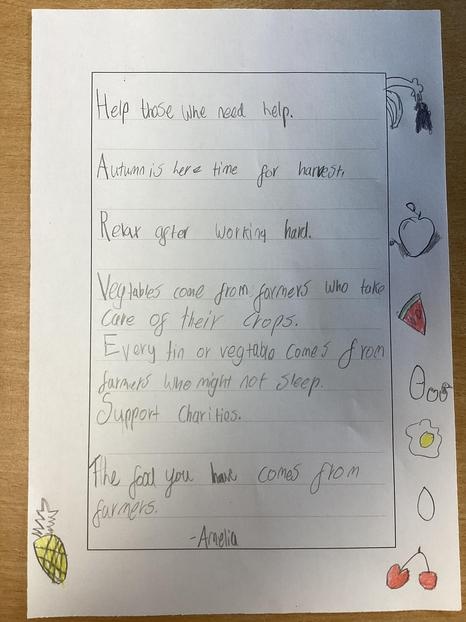 Help those who need help.
Autumn is here time for harvest,
Relax after working hard.
Vegtables come from farmers who take
care of their crops.
Every tin or vegtable comes from
farmers who might not sleep.
Support charities.
The food you have comes from
farmers.
-Amelia